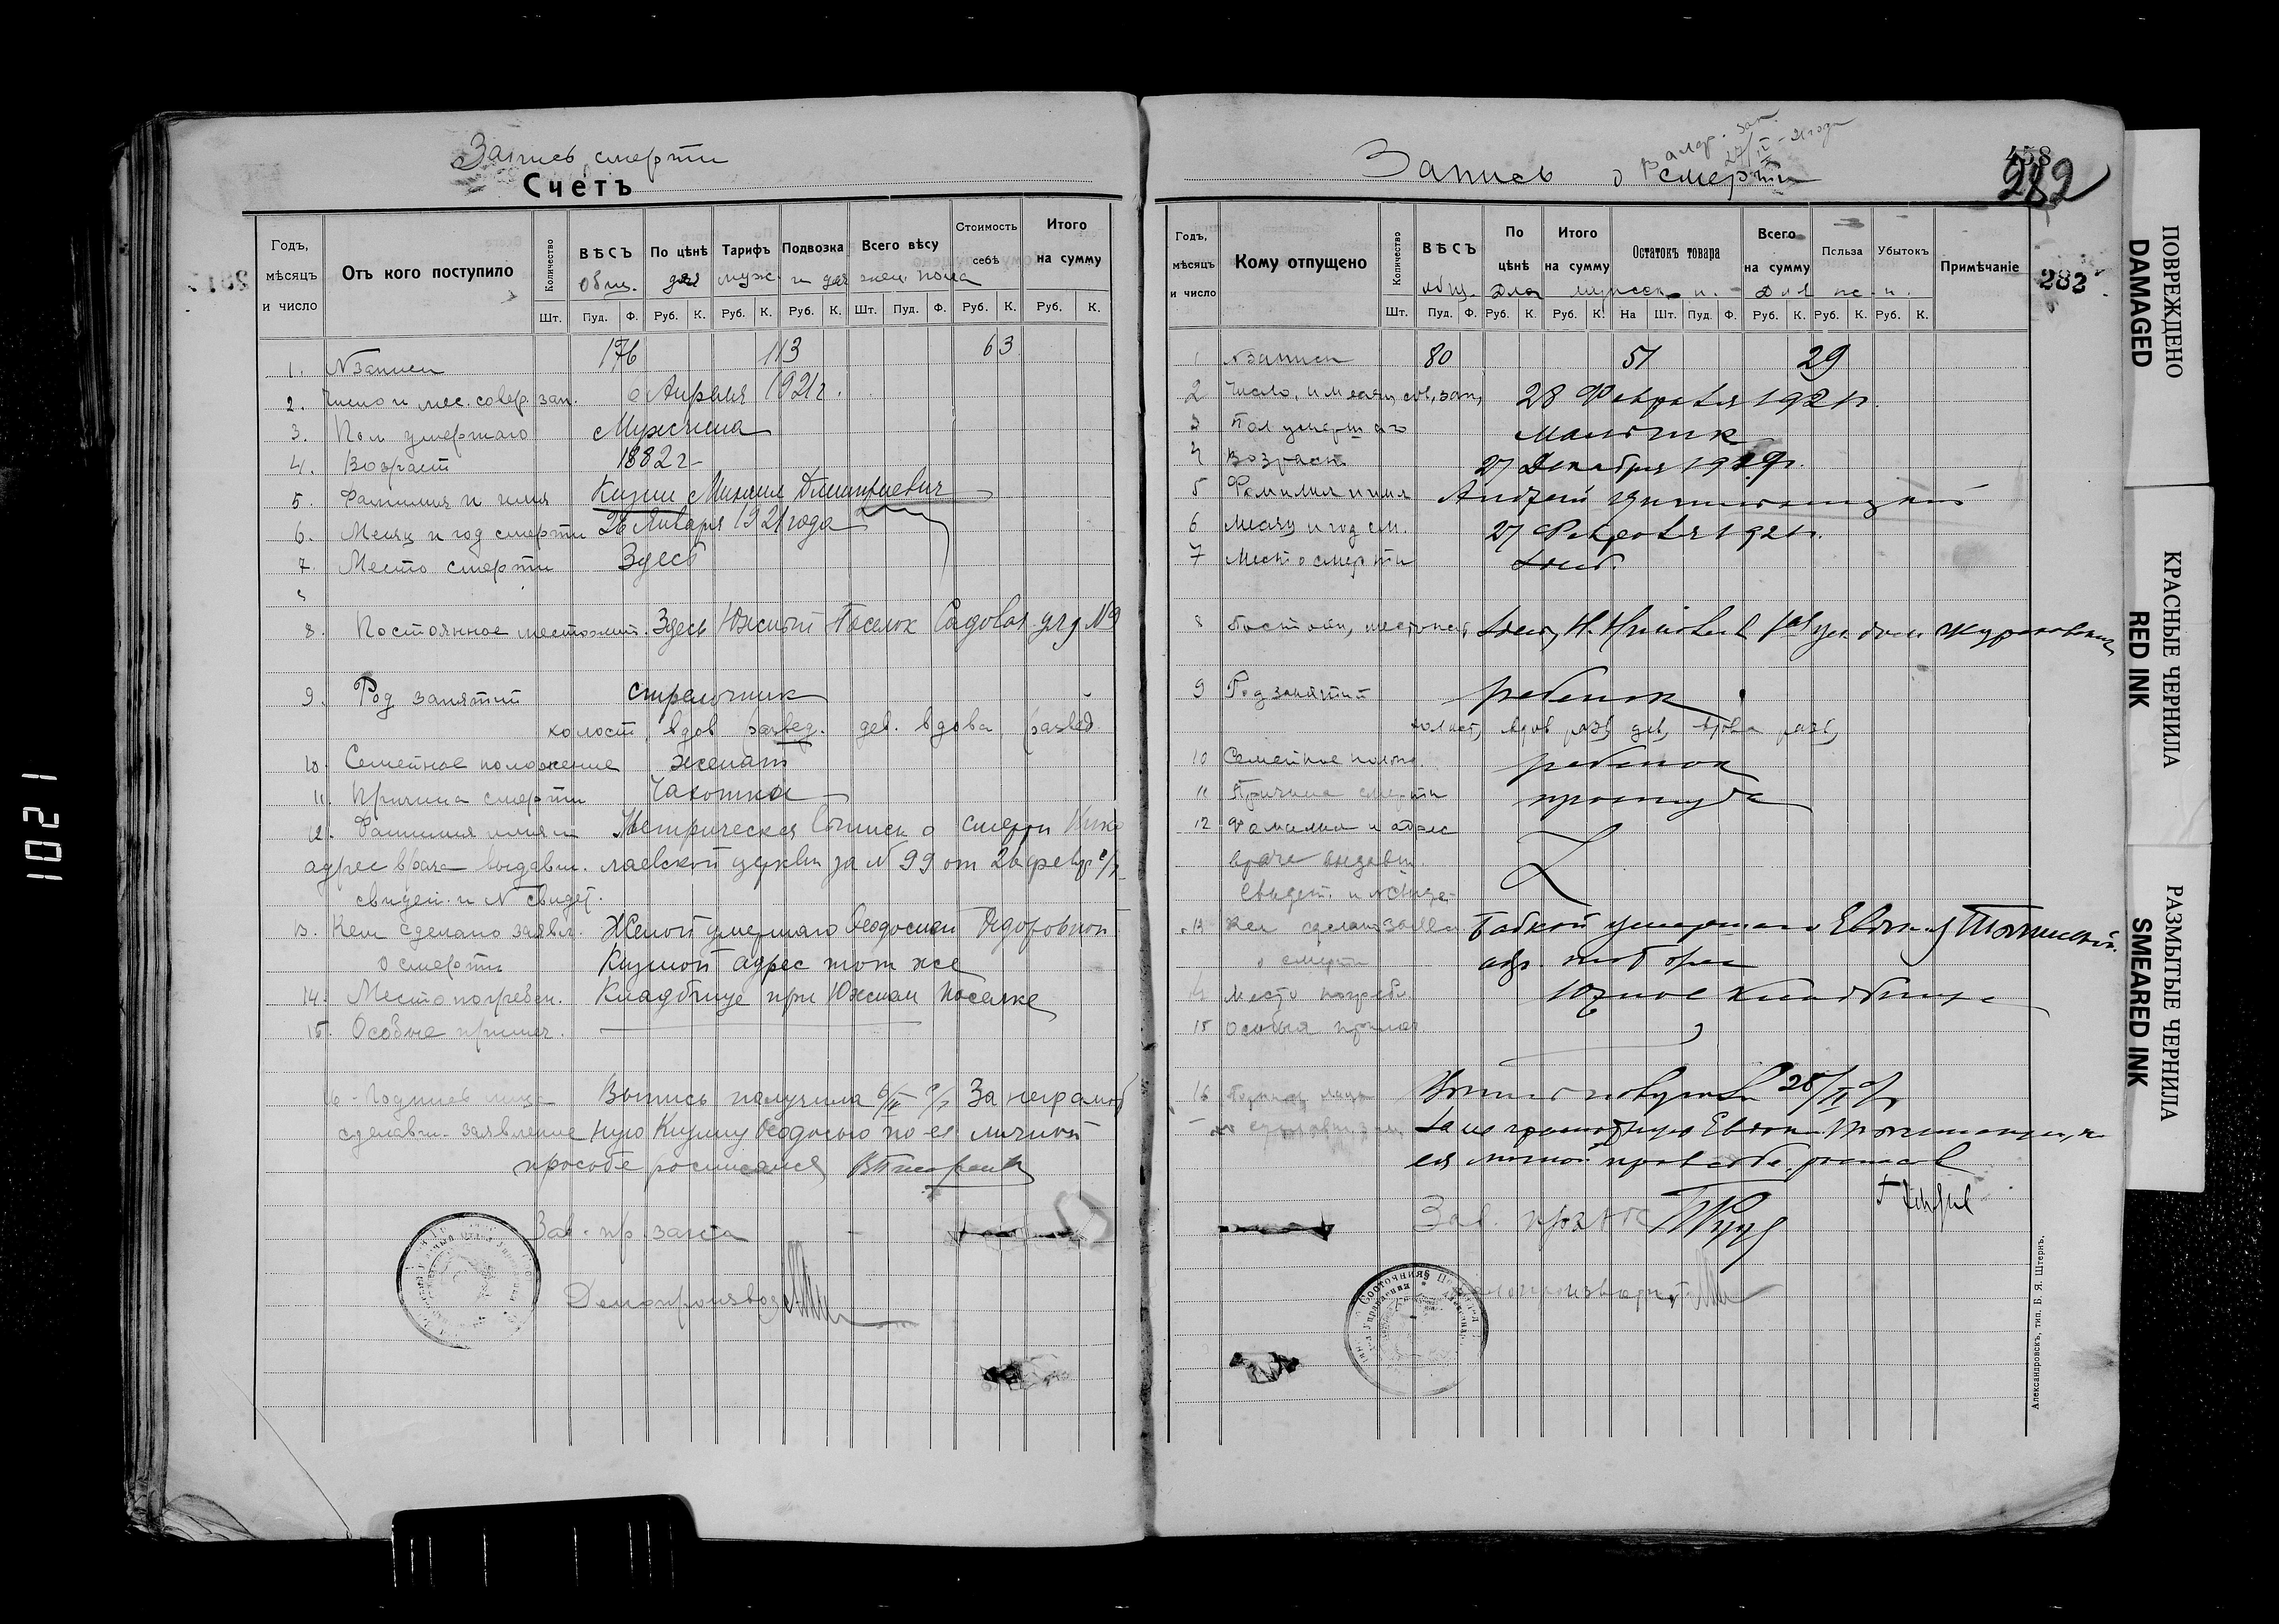 Запись смерти
Счетъ
Годъ, мѣсяцъ и число
Отъ кого поступило
Количество
ВѢСЪ
По цѣнѣ
Тарифъ
Подвозка
Всего вѣсу
Стоимость себѣ
Итого на сумму
Общ. для муж. и для жен. пола
Шт. Пуд. Ф. Руб. К. Руб. К. Руб. К. Шт. Пуд. Ф. Руб. К. Руб. К.
1. N записи 176 113 63
2. Число и мес. совер. зап. 6 Апреля 1921 г.
3. Пол умершаго Мужчина
4. Возраст 1882 г
5. Фамилия и имя Михаил Дмитриевич
6. Месяц и год смерти 26 Января 1921 года
7. Место смерти Здесь
8. Постоянное местожит. Здесь Южный Поселок Садовая ул д N9
9. Род занятий стрелочник
холост, вдов развед. дев. вдова развед.
10. Семейное положение женат
11. Причина смерти Чахотка
12. Фамилия имя и Метрическая Выпись о смерти Нико
адрес врача выдавш. лаевской церкви за N 99 от 26 февр с/г
свидет. и N свидет.
13. Кем сделано заявл. Женой умершаго Феодосией Федоровной
о смерти адрес тот же
14. Место погребен. Кладбище при Южном поселке
15. Особые примеч.
16. Подпись лица Выпись получила 6/IV с/г За неграмот
сделавш. заявление ную Феодосию по ея личной
просьбе росписался
Зав. пр. загса
Делопроизвод
1021
Запись о смерти
458
282
282
Годъ, мѣсяцъ и число
Кому отпущено
Количество
ВѢСЪ
По цѣнѣ
Итого на сумму
Остатокъ товара
Всего на сумму
Польза
Убытокъ
Примѣчаніе
общ. Для мужск. п. Для ж. п.
Шт. Пуд. Ф. Руб. К. Руб. К. На Шт. Пуд. Ф. Руб. К. Руб. К. Руб. К.
1 N записи 80 51 29
2 Число, и месяц сов, зап, 28 Февраля 1921 г.
3 Пол умершаго Мальчик
4 Возраст 27 Декабря
5 Фамилия и имя Андрей
6 Месяц и год см. 27 Февраля 1921 г.
7 Место смерти Здесь
8 Постоян, местожит,
9 Род занятий ребенок
холост, вдов разв, дев, вдова разв,
10 Семейное полож. ребенок
11 Причина смерти простуда
12 Фамилия и адрес
врача выдавш.
свидет. и N свиде-
13 Кем сделано заявл Бабкой умершаго
о смерти адр. тот же
14 Место погреб. Южное Кладбище
15 Особыя примеч
16 Подпись лица 28/II с/г
сделавш зая, За неграмотную
ея личной просьбе росписался
Зав.
Александровскъ, тип. Б. Я. Штернъ.
ПОВРЕЖДЕНО
DAMAGED
КРАСНЫЕ ЧЕРНИЛА
RED INK
РАЗМЫТЫЕ ЧЕРНИЛА
SMEARED INK